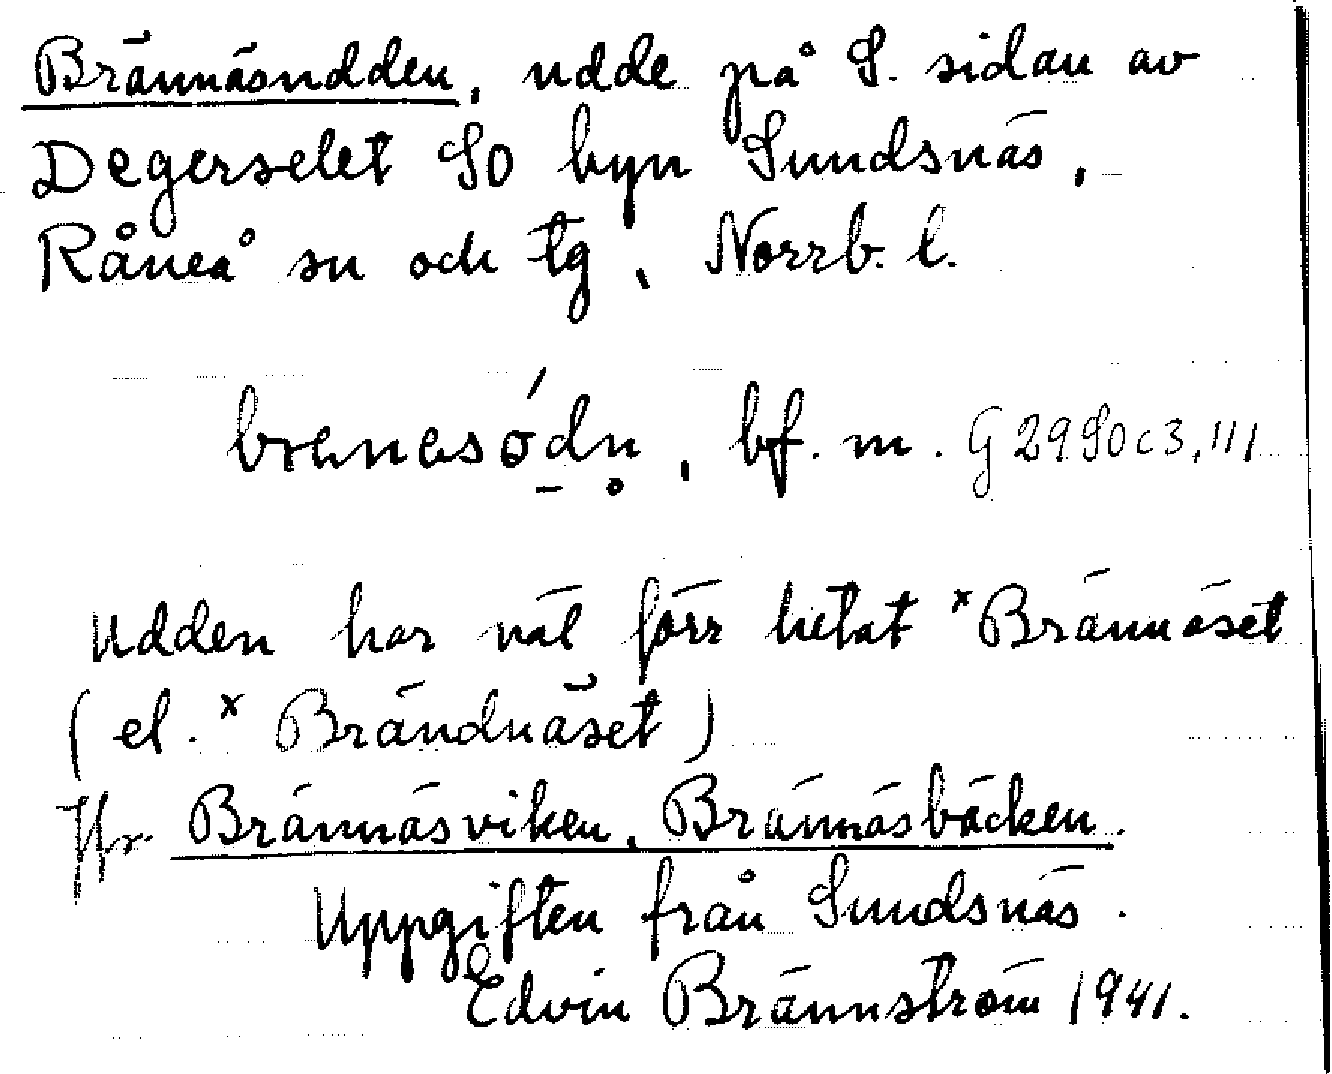 Brännäsudden, udde på S. sidan av
Degerselet SO byn Sundsnäs,
Råneå sn och tg, Norrb. l.
brenesódn̥, bf. m. G 29 SO c 3, III
Udden har väl förr hetat ˣBrännäset
(el. ˣBrändnäset)
Jfr Brännäsviken, Brännäsbäcken.
Uppgiften från Sundsnäs.
Edvin Brännström 1941.